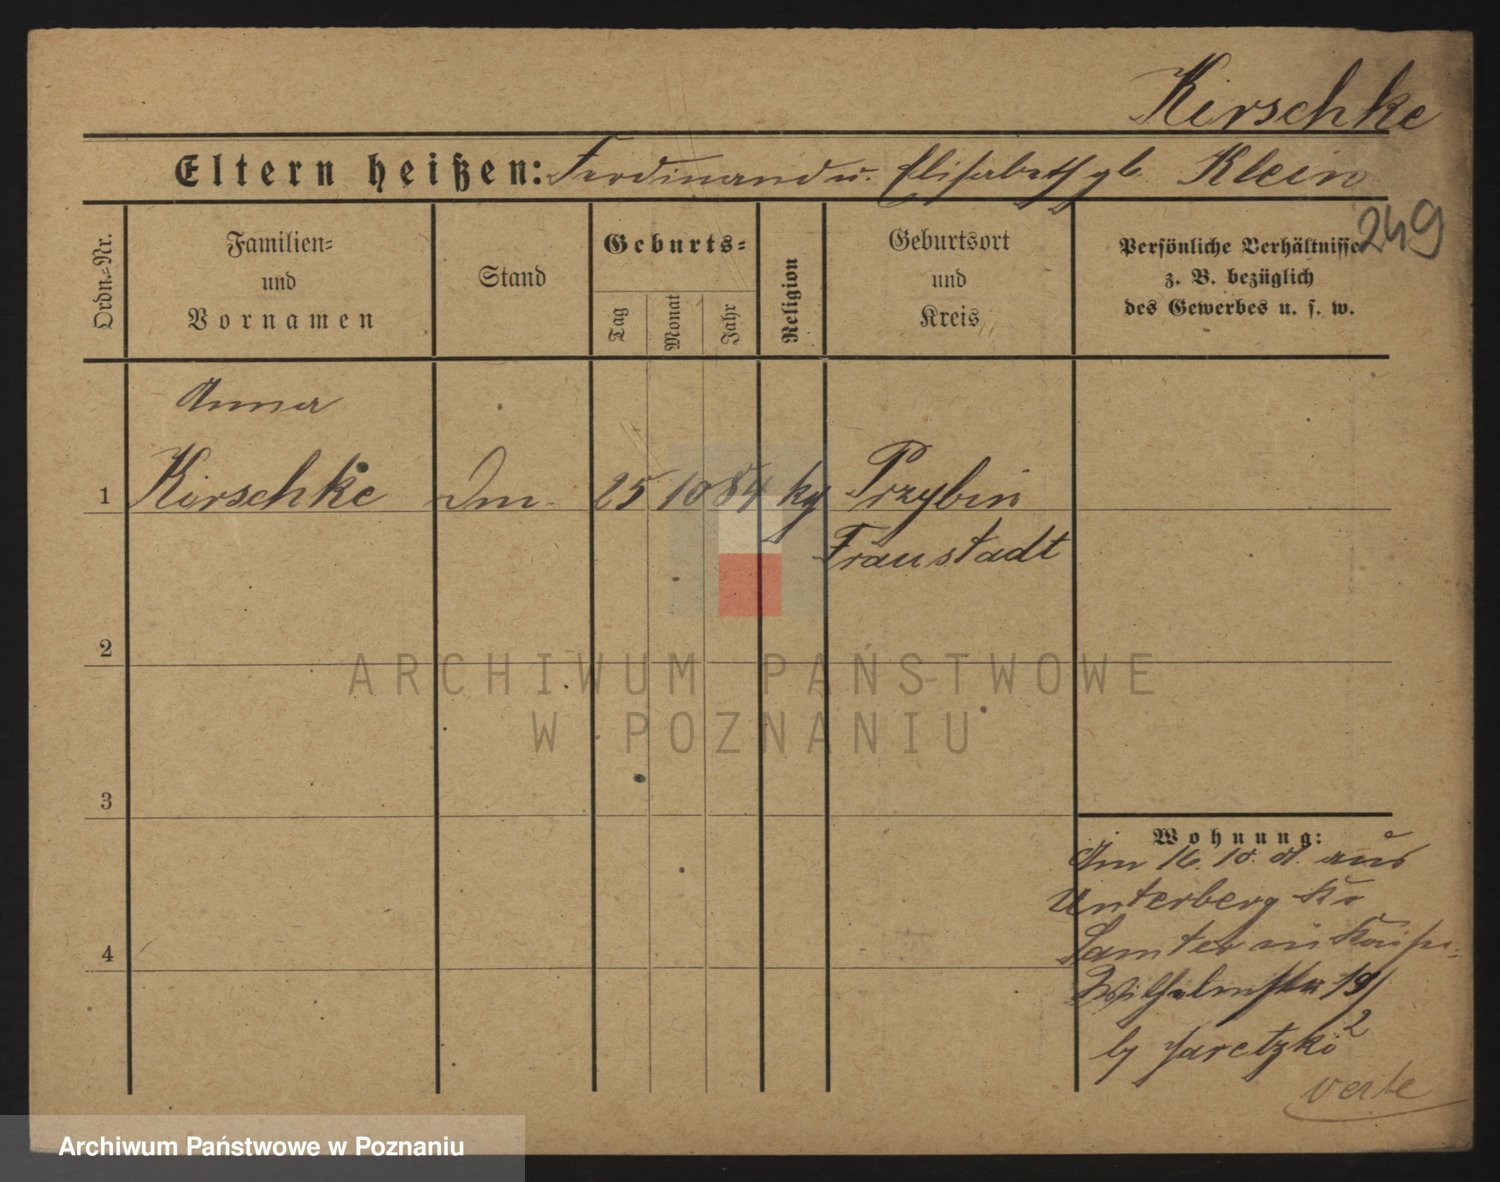 Kirschke
Eltern heißen: Ferdinand u. Elisabeth gb. Klein
249
Ordn.-Nr.
Familien-
und
Vornamen
Stand
Geburts-
Tag
Monat
Jahr
Religion
Geburtsort
und
Kreis
Persönliche Verhältnisse
z. B. bezüglich
des Gewerbes u. s. w.
Anna
1 Kirschke 25 10 84 Przybin
Fraustadt
2
ARCHIWUM PAŃSTWOWE
W POZNANIU
3
Wohnung:
Am 16. 10. aus
Unterberg Kr
4
Samter in
Wilhelmstr 19
by Jaretzki 2
verte
Archiwum Państwowe w Poznaniu